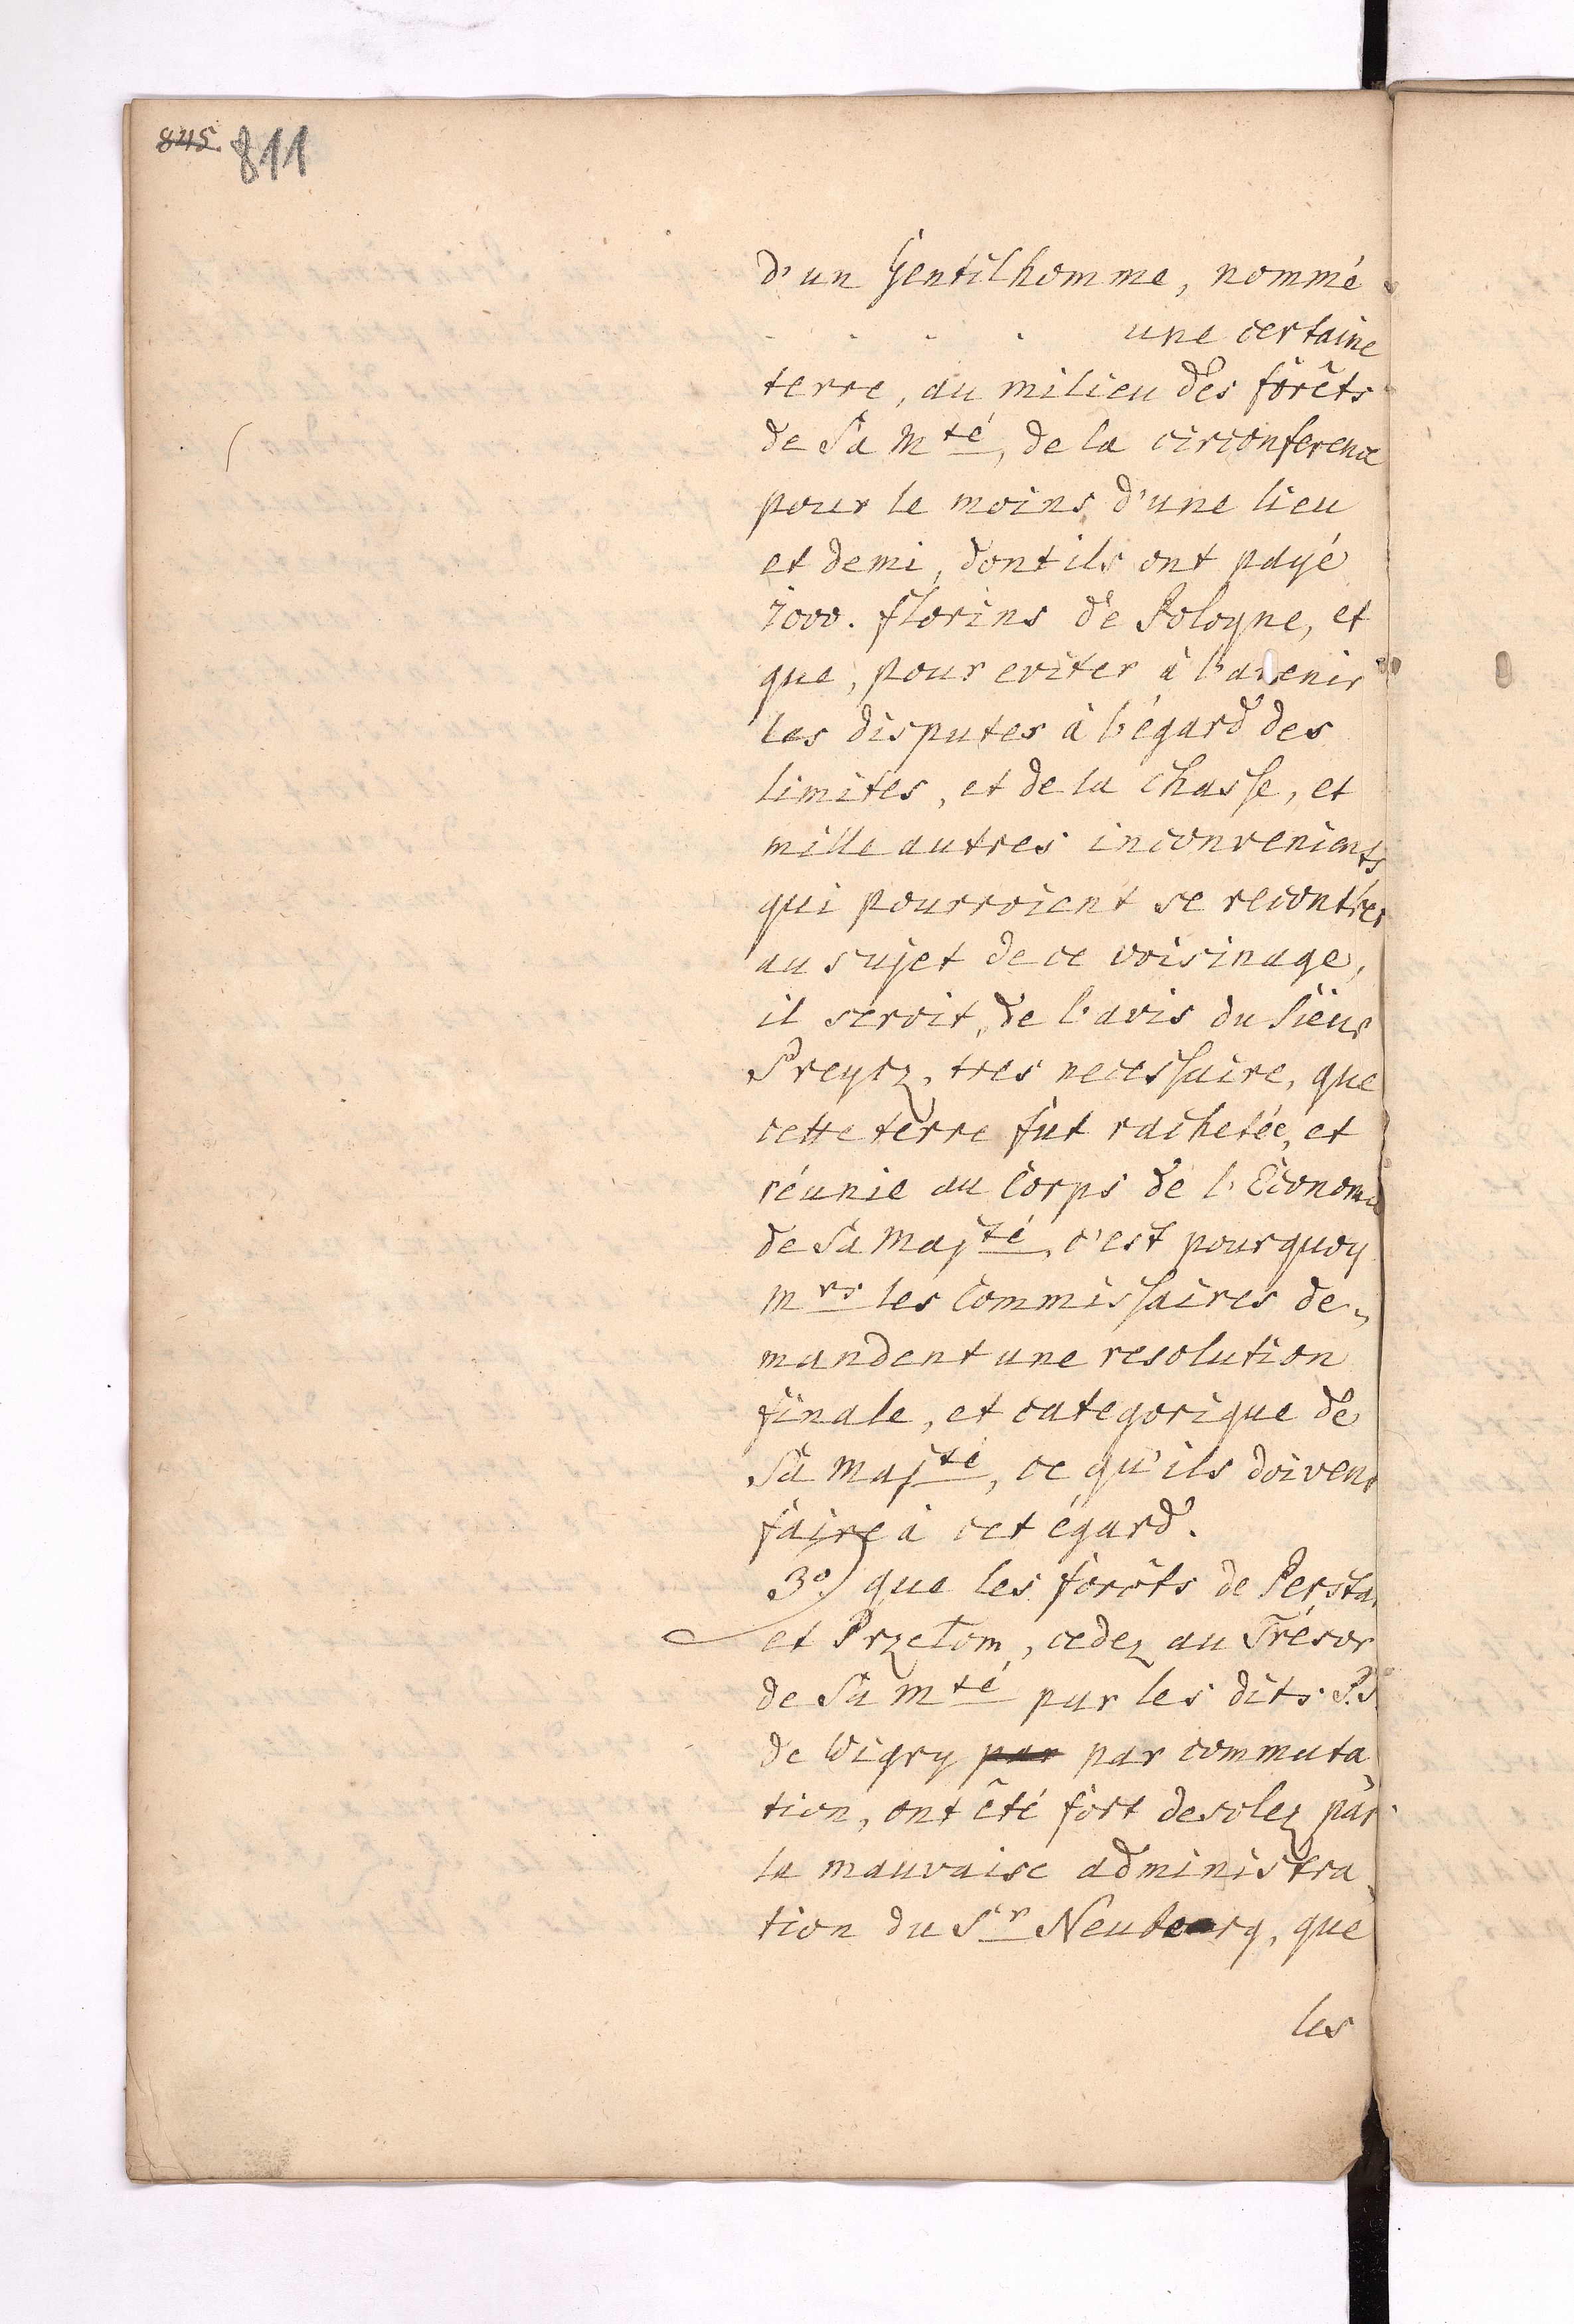 845. 811
d'un Gentilhomme, nommé
. . . . une certaine
terre, au milieu des forêts
de Sa Mté, de la circonference
pour le moins d'une lieu
et demi, dont ils ont payé
7000. florins de Pologne, et
que, pour eviter à l'avenir
les disputes à l'égard des
limites, et de la chasse, et
mille autres inconvenients
qui pourroient se recontrer
au sujet de ce voisinage,
il seroit, de l'avis du Sieur
Preysz, tres necessaire, que
cette terre fut rachetée, et
réunie au Corps de l'Economie
de Sa Majté, c'est pourquoy
Mrs les Commissaires de„
mandent une resolution
finale, et categorique de
Sa Majté, ce qu'ils doivent
faire à cet égard.
3o.) que les forêts de Persta
et Przelom, cedez au Trésor
de Sa Mté par les dits P.s.
de Wigry par par commuta
tion, ont êté fort desolez par
la mauvaise administra
tion du Sr Neuberg, que
les